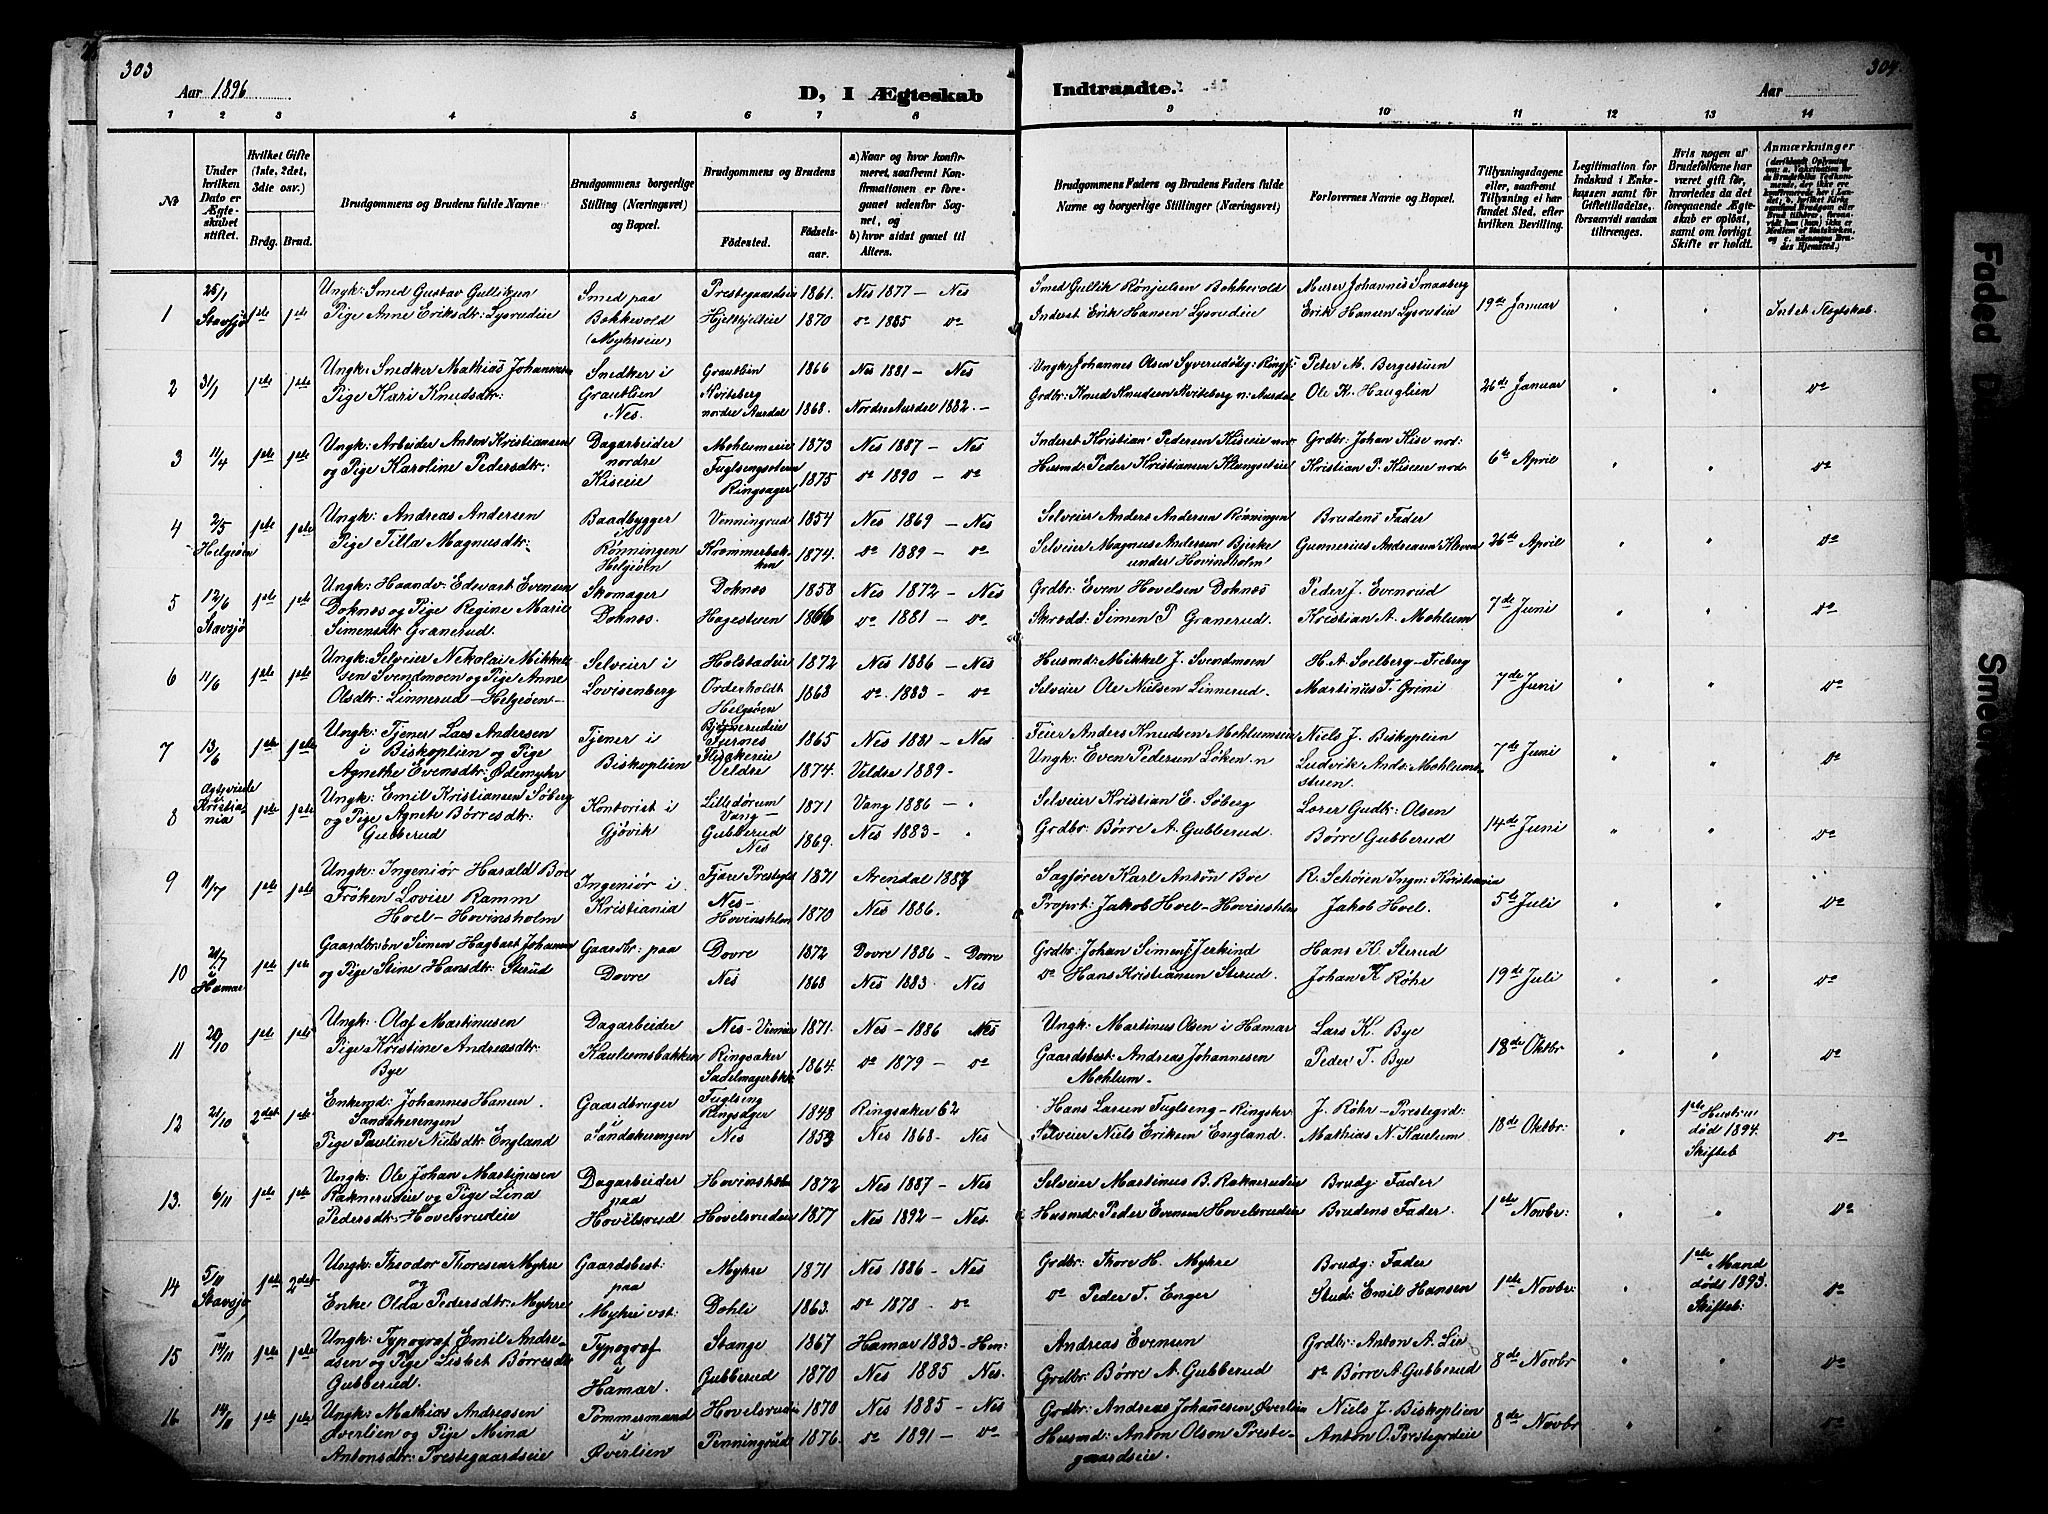 303
304
Aar 1896
D, I Ægteskab
Indtraadte.
Aar
1 2 3 4 5 6 7 8 9 10 11 12 13 14
No
Under hvilken Dato er Ægteskabet stiftet.
Hvilket Gifte (1ste, 2det, 3die osv.)
Brdg. Brud.
Brudgommens og Brudens fulde Navne
Brudgommens borgerlige Stilling (Næringsvei) og Bopæl.
Brudgommens og Brudens
Fødested.
Fødselsaar.
a) Naar og hvor konfirmeret, saafremt Konfirmationen er foregaaet udenfor Sognet, og
b) hvor sidst gaaet til Alters.
Brudgommens Faders og Brudens Faders fulde Navne og borgerlige Stillinger (Næringsvei)
Forlovernes Navne og Bopæl.
Tillysningsdagene eller, saafremt Tillysning ei har fundet Sted, efter hvilken Bevilling.
Legitimation for Indskud i Enkekassen samt for Giftetilladelse, forsaavidt saadan tiltrænges.
Hvis nogen af Brudefolkene har været gift før, hvorledes da det foregaaende Ægteskab er opløst, samt om lovligt Skifte er holdt.
Anmærkninger
1 25/1 Stavsjø 1ste 1ste Ungk: Smed Gustav Gulliksen Smed paa Prestegaardseie 1861. Nes 1877 — Nes Smed Gullik Rønjulsen Bekkevold Murer Johannes Smaaberg 19de Januar " " Intet Slegtskab.
Pige Anne Eriksdtr: Lysrudeie Bekkevold (Myhrseie) Hjelkhjelteie 1870 do 1885 do Inderst Erik Hansen Lysrudeie Erik Hansen Lysrudeie
2 31/1 1ste 1ste Ungk: Snedker Mathias Johannesen Snedker i Grautlien 1866 Nes 1881 — Nes Ungk: Johannes Olsen Peter M. Bergestuen 26de Januar " " do
Pige Kari Knudsdtr: Grautlien Nes. Kviteberg nordre Aurdal 1868. Nordre Aurdal 1882. — Grdbr: Knud Knudsen Kviteberg n: Aurdal Ole K. Hauglien
3 11/4 1ste 1ste Ungk: Arbeider Anton Kristiansen Dagarbeider Mohlumseie 1873 Nes 1887 — Nes Inderst Kristian Pedersen Kiseeie nor: Grdbr: Johan Kise nod: 6te April " " do
og Pige Karoline Pedersdtr: nordre Kiseie Ringsager 1875 do 1890 — do Husmd: Peder Kristiansen Kristian P. Kiseeie nod:
4 2/5 Helgeøen 1ste 1ste Ungk: Andreas Andersen Baadbygger Venningrud 1854 Nes 1869 — Nes Selveier Anders Andersen Rønningen Brudens Fader 26de April " " do
Pige Tilla Magnusdtr: i Rønningen Helgeøen Krommerbakken 1874. do 1889 — do Selveier Magnus Andersen Bjerke under Hovinsholm Gunnerius Andreasen Kleven
5 12/6 Stavsjø 1ste 1ste Ungk: Haandv: Edvart Evensen Skomager Doknes 1858 Nes 1872 — Nes Grdbr: Even Hovelsen Doknes Peder J. Evenrud 7de Juni " " do
Doknes og Pige Regine Marie Doknes. Hagestuen 1866 do 1881 — do Skrædd: Simen P. Granerud. Kristian A. Mohlum
Simensdtr Granerud.
6 11/6 1ste 1ste Ungk: Selveier Nekolai Mikkelsen Selveier i Holstadeie 1872 Nes 1886 — Nes Husmd: Mikkel J. Svendmoen H. A. Soelberg - Freberg 7de Juni " " do
Svendmoen og Pige Anne Lovisenberg Orderholdt Helgeøen 1863 do 1883 — do Selveier Ole Nielsen Linnerud. Martinus T. Grini
Olsdtr: Linnerud — Helgeøen —
7 13/6 1ste 1ste Ungk: Tjener Lars Andersen Tjener i Furnes 1865 Nes 1881 — Nes Feier Anders Knudsen Mohlumseie Niels J. Biskoplien 7de Juni " " do
i Biskoplien og Pige Biskoplien Veldre 1874. Veldre 1889 — Ungk: Even Pedersen Løken n Ludvik Ands: Mohlumsstuen.
Agnethe Evensdtr: Ødemyhr
8 Kristiania 1ste 1ste Ungk: Emil Kristiansen Søberg Kontorist i Lillesørum Vang — 1871 Vang 1886 — " Selveier Kristian E. Søberg Lorer Gudtr: Olsen 14de Juni " " do
og Pige Agnete Børresdtr: Gjøvik Gubberud Nes 1869. Nes 1883 — " Grdbr: Børre A. Gubberud. Børre Gubberud
Gubberud
9 11/7 1ste 1ste Ungk: Ingeniør Harald Boe Ingeniør i Tjøre Prestegd 1871 Arendal 1887 Sagfører Karl Anton Boe R. Schøien Ingn: Kristiania 5te Juli " " do
Frøken Lovise Ramm Kristiania Nes — Hovinsholm 1870 Nes 1886. Proprt: Jakob Hoel - Hovinsholm Jakob Hoel.
Hoel — Hovinsholm
10 21/7 i Hamar 1ste 1ste Gaardbr:søn Simen Hagbart Johansen Gaardbr: paa Dovre 1872 Dovre 1886 — Dovre Grdbr: Johan Simens: Jerkind Hans K. Sterud 19de Juli " " do
og Pige Stine Hansdtr: Sterud Dovre Nes 1868 Nes 1883 Nes do Hans Kristiansen Sterud. Johan K. Røhr
11 20/10 1ste 1ste Ungk: Olaf Martinusen Dagarbeider Nes - 1871. Nes - 1886 Nes Ungk: Martinus Olsen i Hamar Lars K. Bye 18de Oktbr " " do
Pige Kristine Andreasdtr: Kaulumsbakken Ringsaker 1864. do 1879 — do Gaardsbest: Andreas Johannesen Peder T. Bye
Bye Mohlum.
12 21/10 2det 1ste Enkemd: Johannes Hansen Gaardbruger Fuglseng Ringsager 1848 Ringsaker 62 Hans Larsen Fuglseng - Ringsker J. Røhr - Prestegrd: 18de Oktbr: " 1ste Hustru død 1894. Skifteb do
Sandakerengen i Sandakerengen
Pige Pauline Nielsdtr: England Nes 1853 Nes 1868 — Nes Selveier Niels Eriksen England. Mathias N. Kaulum
13. 6/11 1ste 1ste Ungk: Ole Johan Martinusen Dagarbeider Hovinsholm 1872 Nes 1887 — Nes Selveier Martinus B. Raknerudeie Brudg: Fader 1ste Novbr: " " do
Raknerudeie og Pige Lina paa Hovelsrud Hovelsrudeie 1877 Nes 1892 — Nes. Husmd: Peder Evensen Hovelsrudeie Brudens Fader
Pedersdtr: Hovelsrudeie
14 5/11 Stavsjø 1ste 2det Ungk: Theodor Thoresen Myhre Gaardsbest: Myhre 1871 Nes 1886 — Nes Grdbr: Thore H. Myhre Brudg: Fader 1ste Novbr: " 1ste Mand døde 1893. Skifteb: do
og paa
Enke Olda Pedersdtr: Myhre Myhre vst: Dohli 1863. do 1878 — do do Peder T. Enger Stud: Emil Hansen
15 14/11 1ste 1ste Ungk: Typograf Emil Andreasen Typograf Stange 1867 Hamar 1883 — Ham: Andreas Evensen Grdbr: Anton A. Lie 8de Novbr " " do
og Pige Lisbet Børresdtr i Hamar. Gubberud 1870 Nes 1885 Nes. Grdbr: Børre A. Gubberud do Børre A Gubberud
Gubberud.
16 14/11 1ste 1ste Ungk: Mathias Andreasen Tømmermand Hovelsrudeie 1870 Nes 1885 — Nes Grdbr: Andreas Johannesen Øverlien Niels J. Biskoplien 8de Novbr " " do
Øverlien og Pige Mina i Øverlien Penningrud 1876. do 1891 — do Husmd: Anton Olsen Prestegaardseie. Anton O. Prestegrdeie
Antonsdtr: Prestegaardseie
Faded